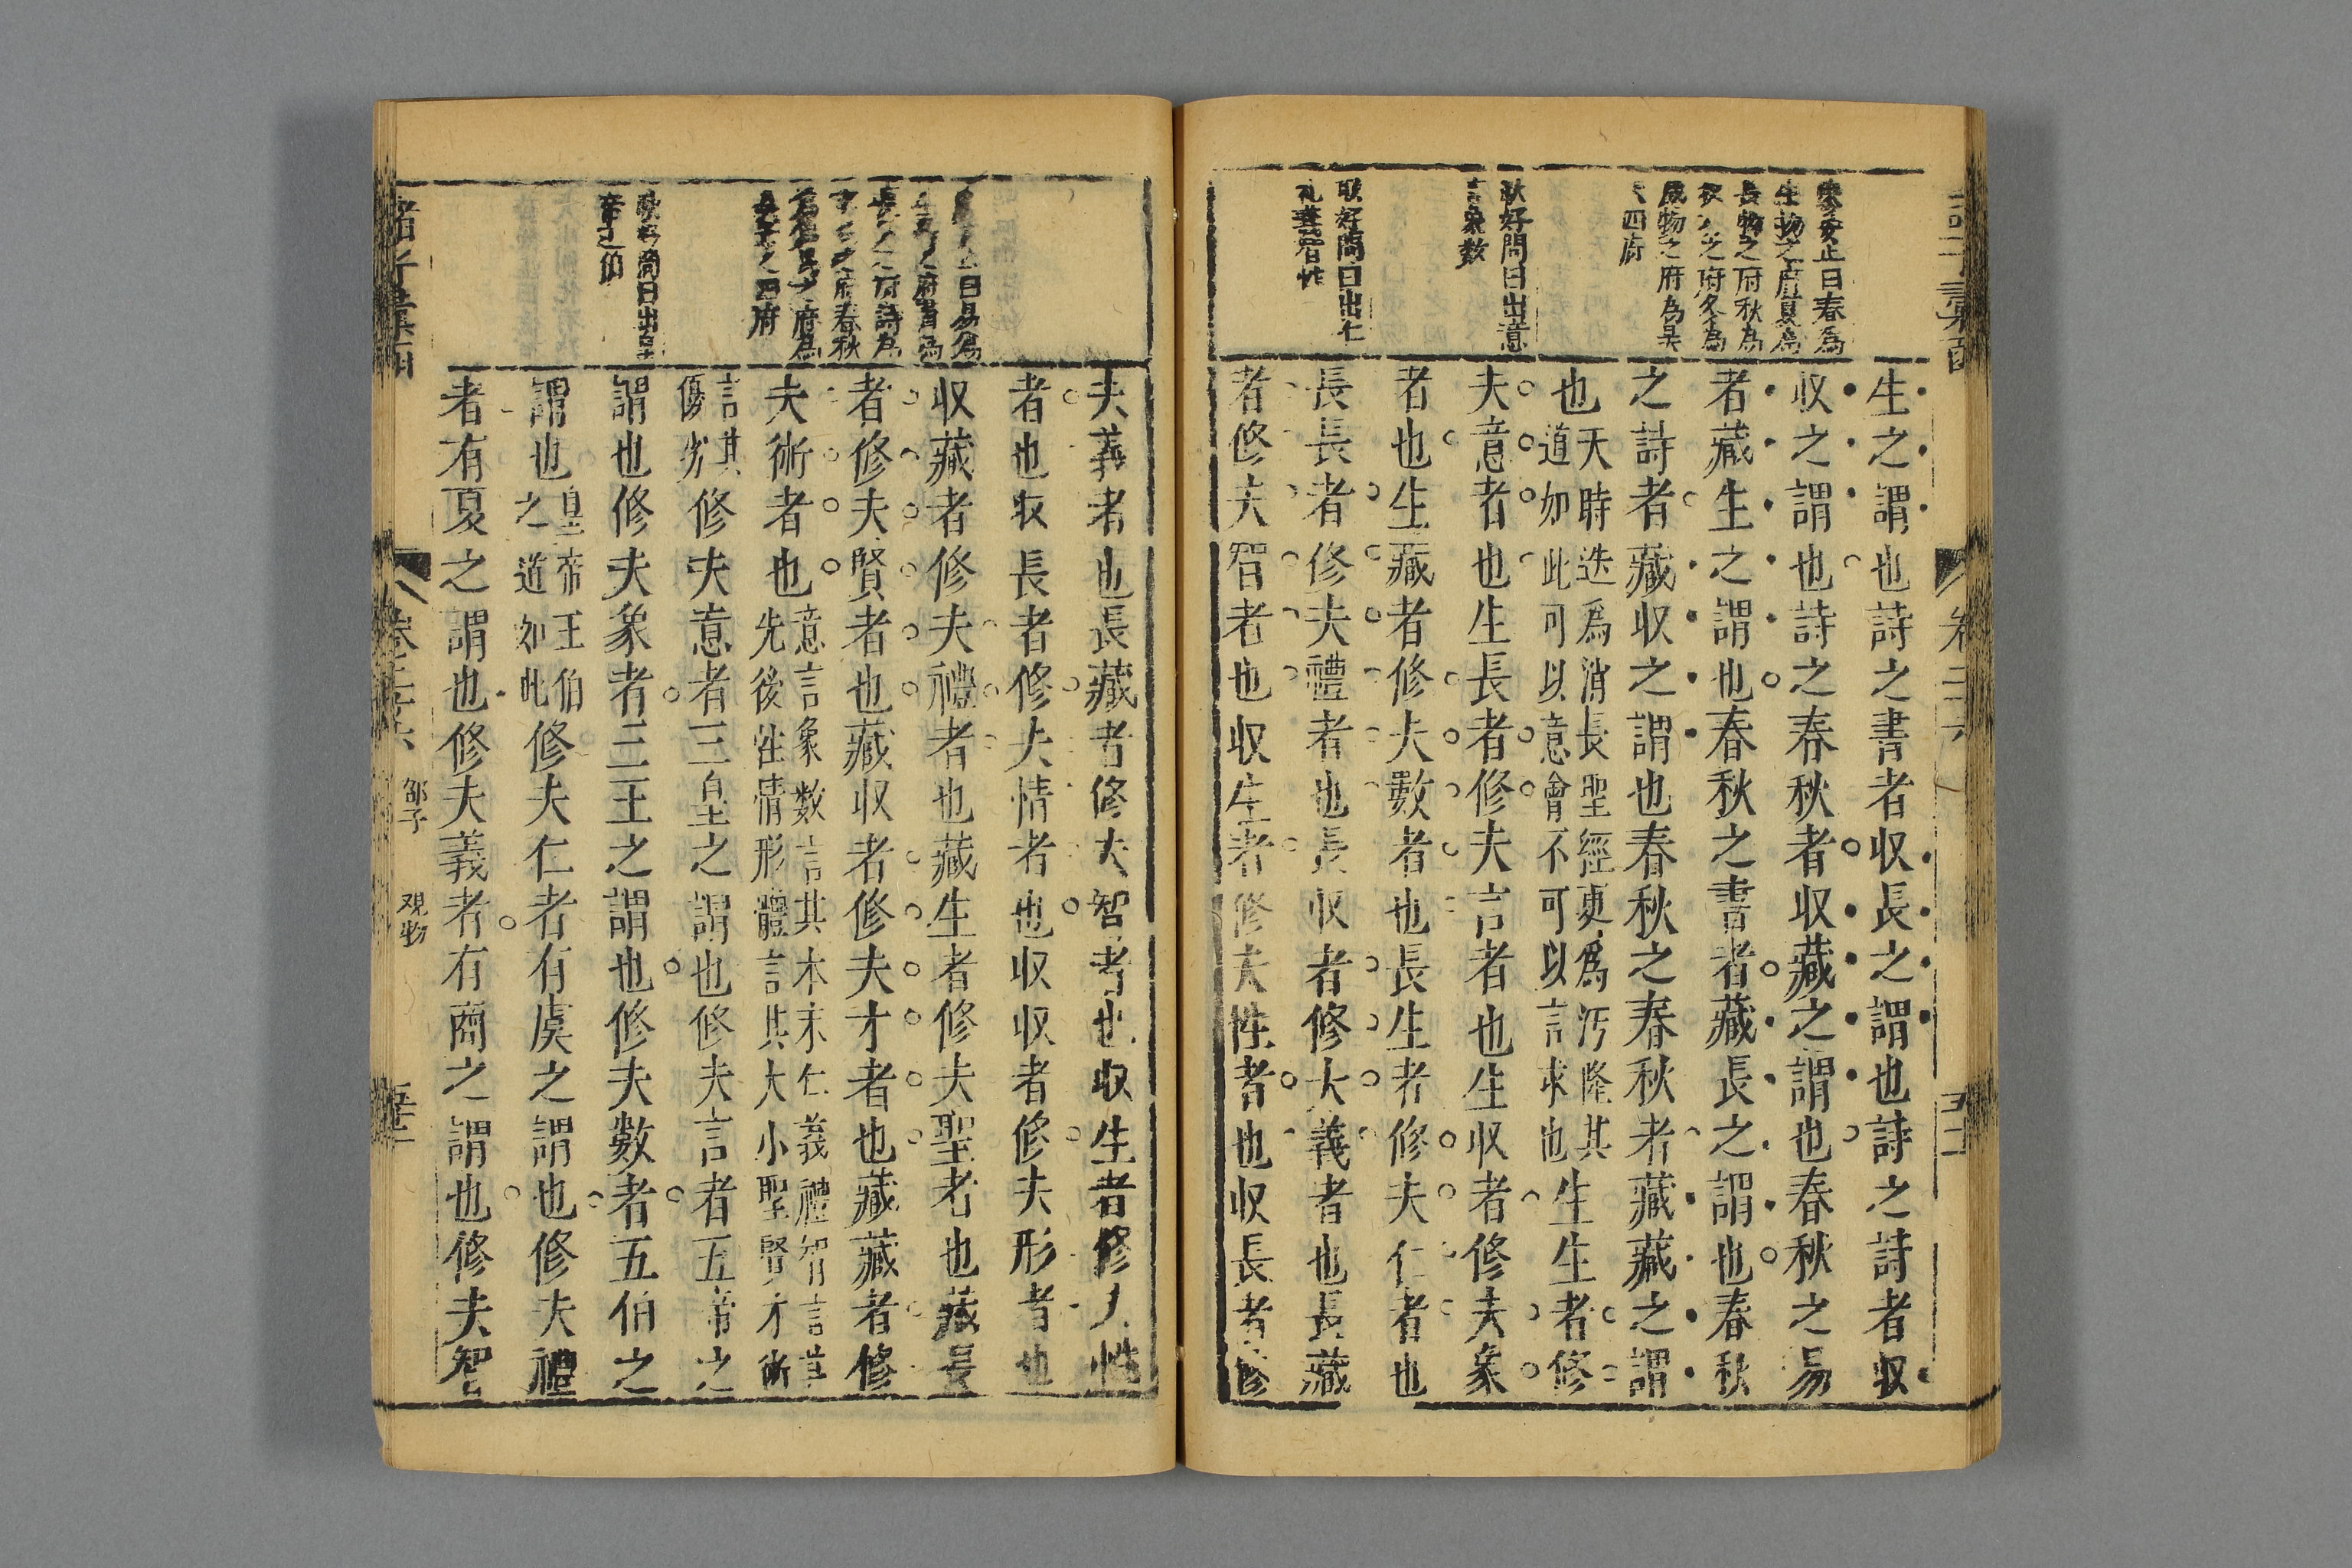 生之謂也詩之書者収長之謂也詩之詩者収
収之謂也詩之春秋者収藏之謂也春秋之易
者藏生之謂也春秋之書者藏長之謂也春秋
之詩者藏収之謂也春秋之春秋者藏藏之謂
也
天時迭爲消長聖經更爲汚隆其
道如此可以意會不可以言求也
生生者修
夫意者也生長者修夫言者也生収者修夫象
者也生藏者修夫數者也長生者修夫仁者也
長長者修夫禮者也長収者修夫義者也長藏
者修夫智者也収生者修夫性者也収長者修
春爲
生物之府夏爲
長物之府秋爲
之府冬爲
物之府為昊
四府
耿好問曰出意
言象数
耿好問曰出仁
礼義智性
卷二六
夫義者也長藏者修夫智者也収生者修夫性
者也収長者修夫情者也収収者修夫形者也
収藏者修夫禮者也藏生者修夫聖者也藏長
者修夫賢者也藏収者修夫才者也藏藏者修
夫術者也
意言象數言其本末仁義禮智言其
先後性情形體言其大小聖賢才術
言其
優劣
修夫意者三皇之謂也修夫言者五帝之
謂也修夫象者三王之謂也修夫數者五伯之
謂也
皇帝王伯
之道如此
修夫仁者有虞之謂也修夫禮
者有夏之謂也修夫義者有商之謂也修夫智
曰易為
府書為
府詩為
府春秋
府為
之四府
問曰出皇
帝王伯
邵子
观物